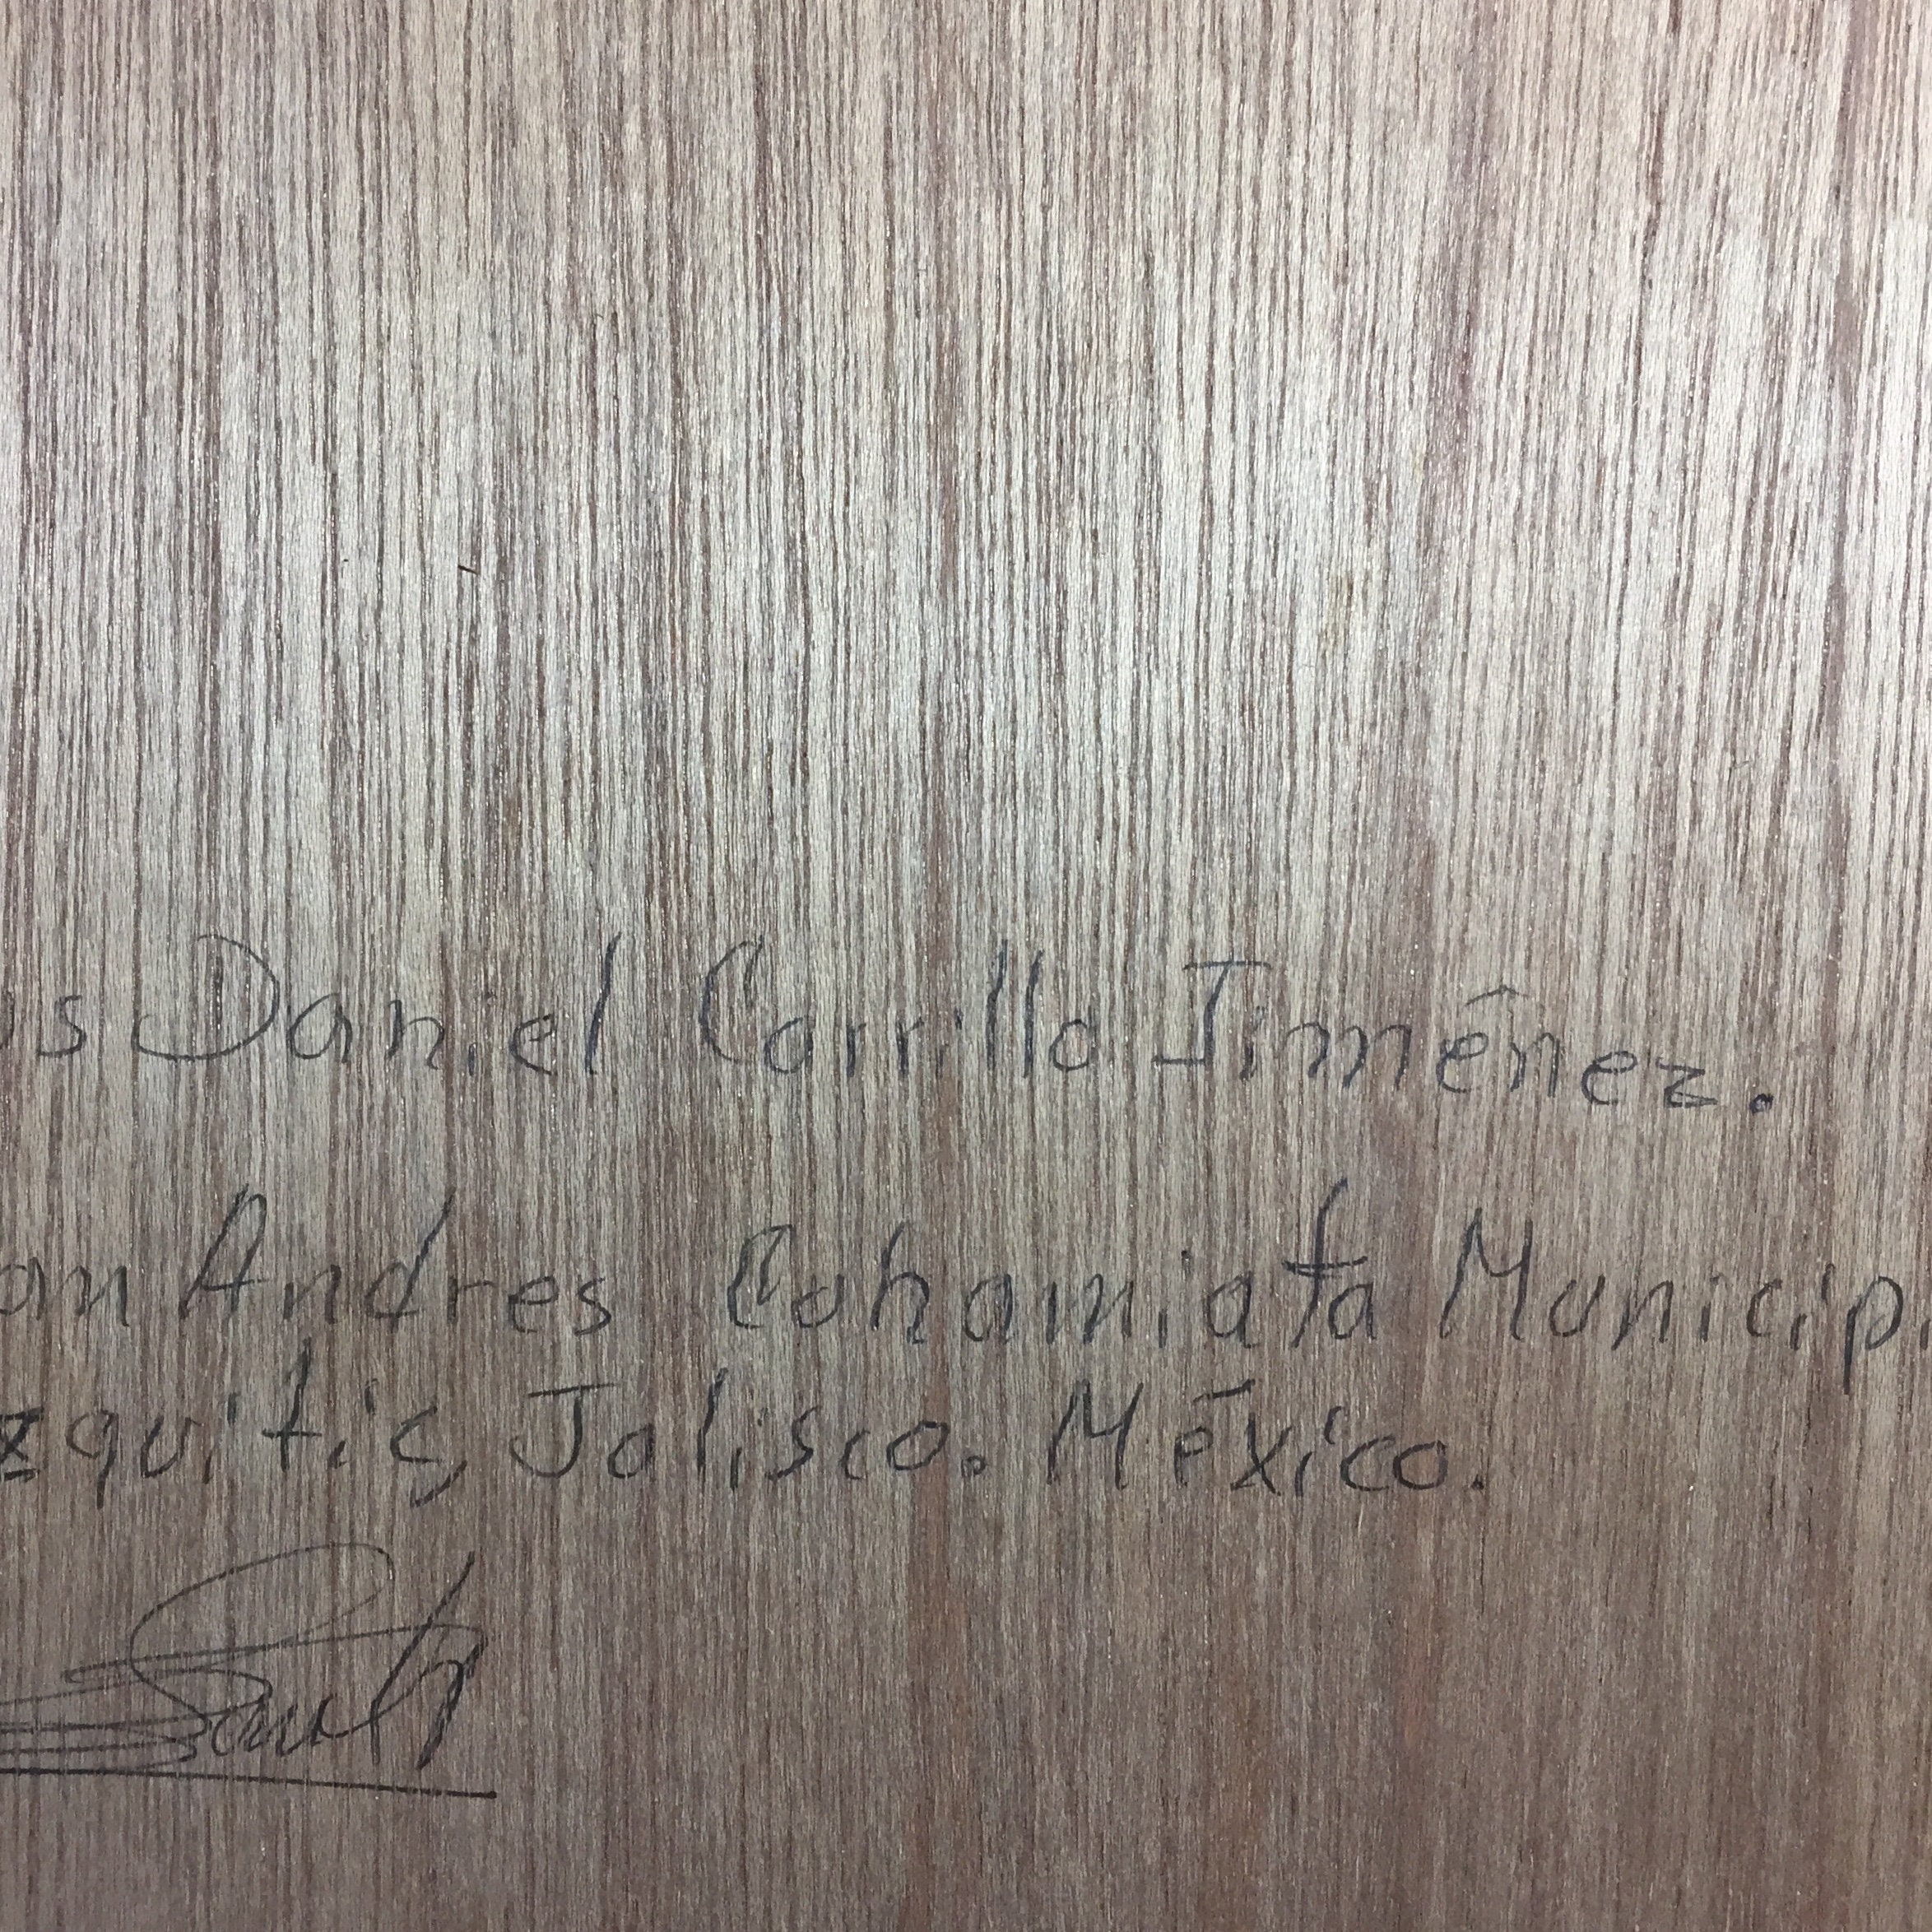 os Daniel Carrillo Jimênez.
an Andres Cohamiata Municip
zquitic, Jalisco. México.